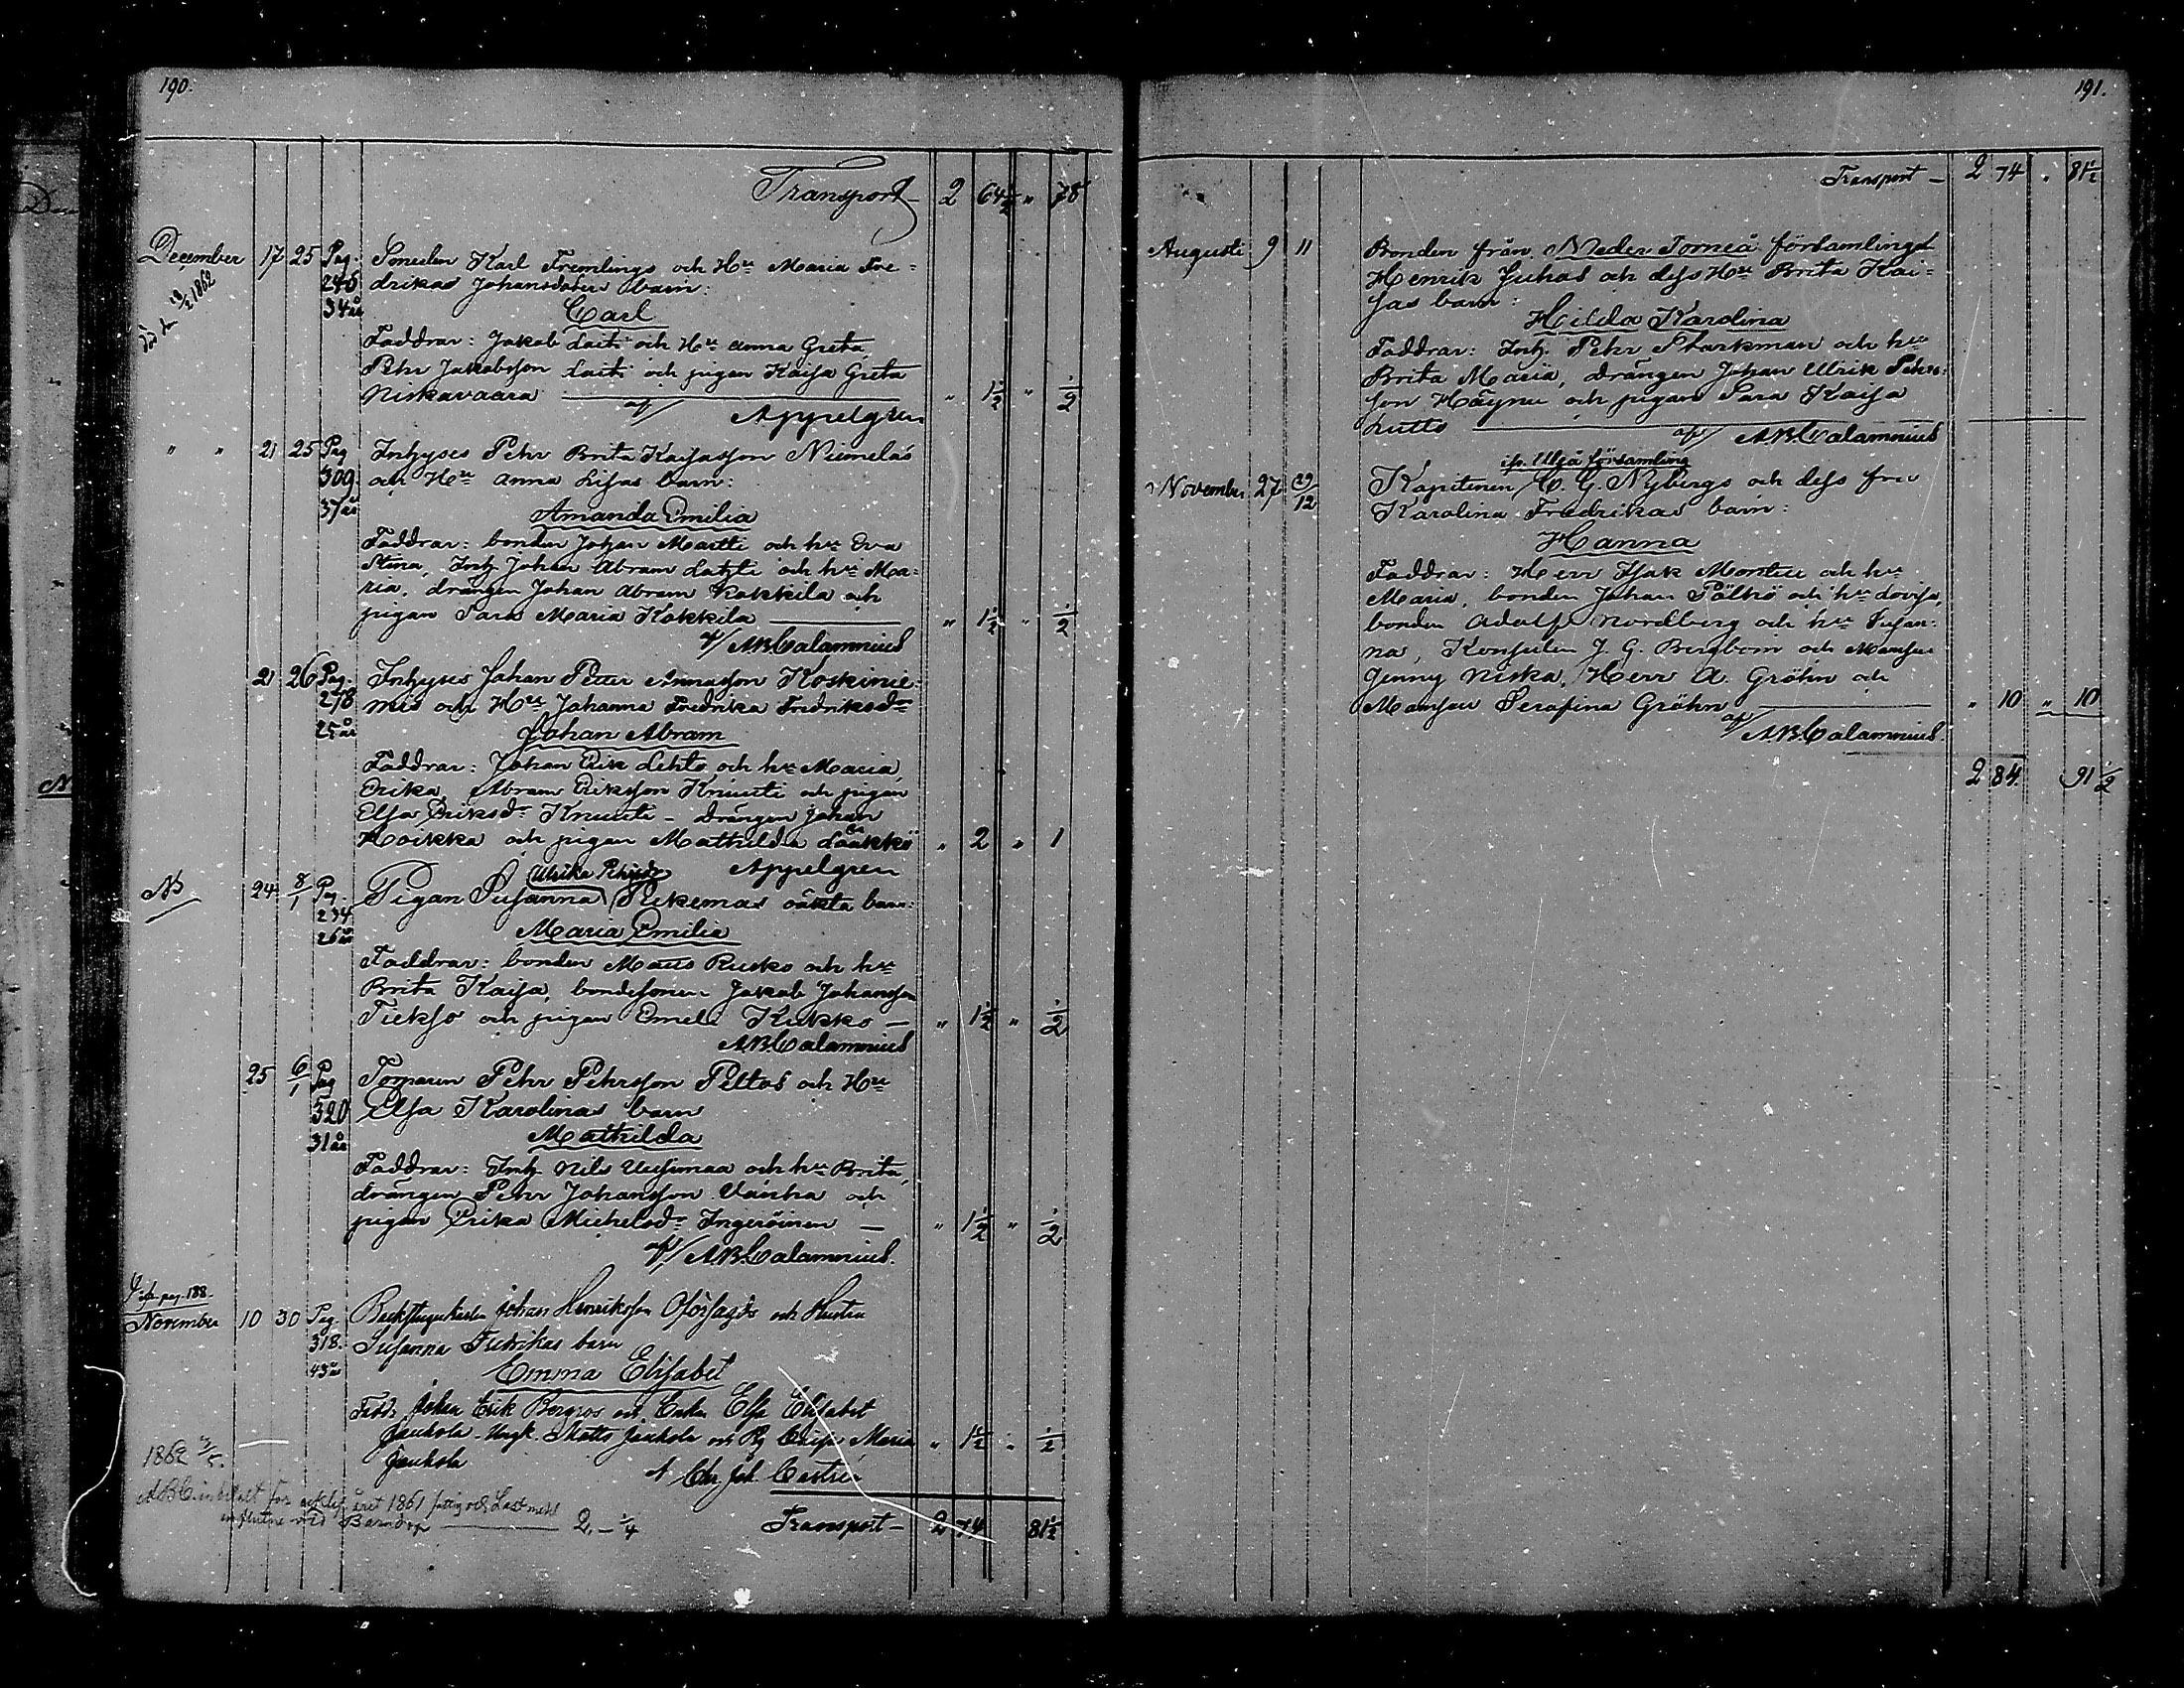 190.
Transport - 2 64 1/2 " 78
December 17 25 Pag. Smeden Karl Fremlings och Hu Maria Fre=
död den 1862
246 drikas Johansdotters barn:
34 år Carl
Faddrar: Jakob Laiti och Hu Anna Greta,
Pehr Jakobsson Laiti och pigan Kaisa Greta
Niskavaara " 1 1/2 " 1/2
af/ Appelgren
" " 21 25 Pag Inhyses Pehr Brita Kaisasson Niemeläs
309. och Hu Anna Lisas barn:
37 år Amanda Emilia
Faddrar: bonden Johan Martti och hu Eva
Stina, Inh. Johan Abram Lahti och hu Ma=
ria, drängen Johan Abram Kokkila och
pigan Sara Maria Kokkila " 1 1/2 " 1/2
af/ A.B. Calamnius
21 26 Pag. Inhyses Johan Petter Annasson Koskinie=
278 mis och Hu Johanna Fredrika Fredriksdr
25 år Johan Abram
Faddrar: Johan Erik Lehto och hu Maria,
Erika, Abram Eriksson Knuuti och pigan
Elsa Eriksdr Knuuti - drängen Johan
Hoikka och pigan Mathilda Laakkö " 2 " 1
Appelgren
Ulrika Pehrsdr
NB 24 8/1 Pag. Pigan Susanna Rekemas oäkta barn:
234
26 år Maria Emilia
Faddrar: bonden Mats Rusko och hu
Brita Kaisa, bondesonen Jakob Johansson
Tiekso och pigan Emeli Kukko - " 1 1/2 " 1/2
A.B. Calamnius
25 6/1 Pag Torparen Pehr Pehrsson Peltos och Hu
320 Elsa Karolinas barn
31 år Mathilda
Faddrar: Inh. Nils Uusimaa och hu Brita,
drängen Pehr Johansson Vanha och
pigan Erika Michelsdr Ingeröinen - " 1 1/2 " 1/2
af/ A.B. Calamnius.
pag. 188.
November 10 30 Pag. Johan Henriksson och Hustru
318. Susanna Fredrikas barn
43 år Emma Elisabet
Fadd: Johan Erik Bergros och Enkan Elsa Elisabet
Jaukola - Ungk. Matts Jaukola och Pig Maria " 1 1/2 " 1/2
Jaukola
Joh. Castrén
1862 3/5.
A.B.C. för året 1861 fattig och Last med
influtne vid Barndop 2. - 1/4
Transport - 2 74 81 1/2
191.
Transport - 2 74 " 81 1/2
Augusti 9 11 Bonden från Neder Torneå församling
Henrik Juhas och dess Hu Brita Kai=
sas barn:
Hilda Karolina
Faddrar: Inh. Pehr Starkman och hu
Brita Maria, drängen Johan Ulrik Pehrs=
son Häyny och pigan Sara Kaisa
Lutto
af/ A.B. Calamnius
ifr. Uleå församling
November 27 29/12 Kapitenen C. G. Nybergs och dess fru
Karolina Fredrikas barn:
Hanna
Faddrar: Herr Isak Montin och hu
Maria, bonden Johan Pälkö och hu Lovisa,
bonden Adolf Nordberg och hu Susan=
na, Konsulen J. G. Bergbom och Mamsell
Jenny Niska, Herr A. Gröhn och
Mamsell Serafina Gröhn " 10 " 10
af/ A.B. Calamnius.
2 84. 91 1/2